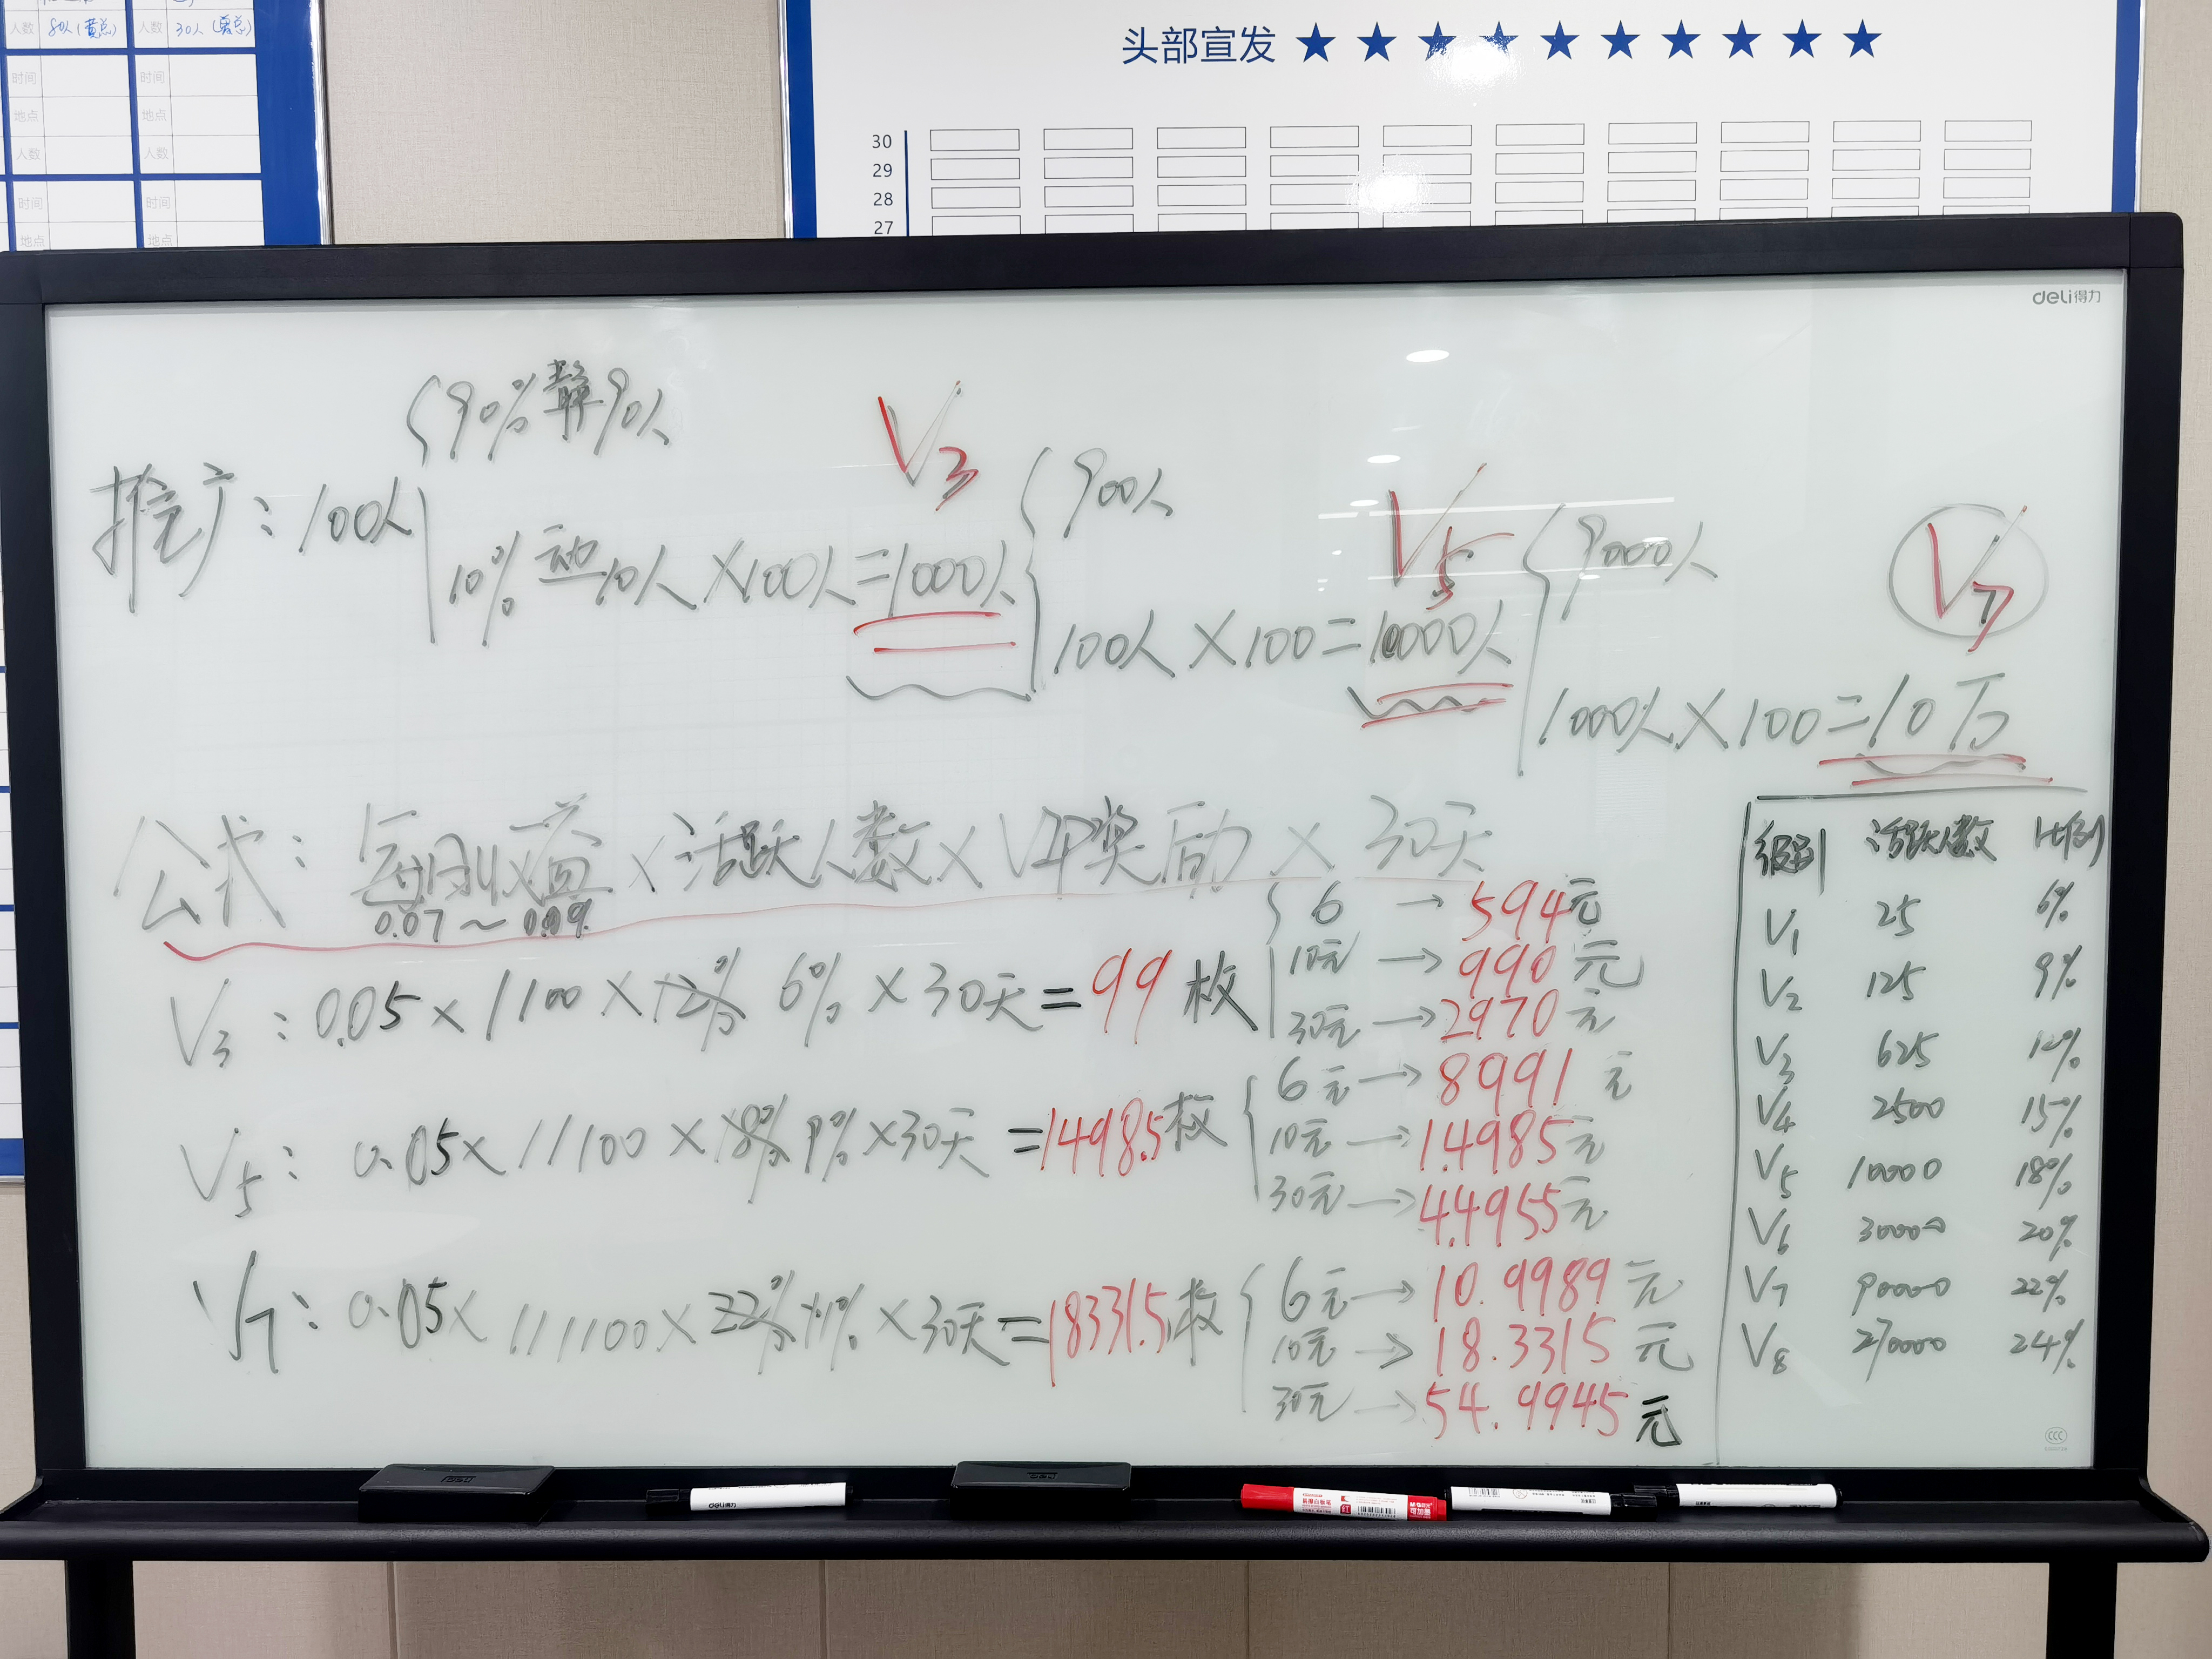 人数 80人(黄总) 人数 30人(奚总)
时间 时间
地点 地点
人数 人数
时间 时间
地点 地点
头部宣发 ★ ★ ★ ★ ★ ★ ★ ★ ★ ★
30
29
28
27
deli得力
90% 静 90人
推广: 100人
10% 动 10人 ×100人=1000人
V3
900人
100人×100=10000人
V5
9000人
1000人×100=10万
V7
公式: 每日收益×活跃人数×VIP奖励×30天
0.07~0.09%
V3: 0.05×1100×12% 6%×30天=99枚
6→594元
10元→990元
30元→2970元
V5: 0.05×11100×18% 9%×30天=1498.5枚
6元→8991元
10元→1.4985元
30元→4.4955元
V7: 0.05×111100×22% 11%×30天=18331.5枚
6元→10.9989元
10元→18.3315元
30元→54.9945元
级别 活跃人数 比例
V1 25 6%
V2 125 9%
V3 625 12%
V4 2500 15%
V5 10000 18%
V6 30000 20%
V7 90000 22%
V8 270000 24%
deli
deli得力
deli